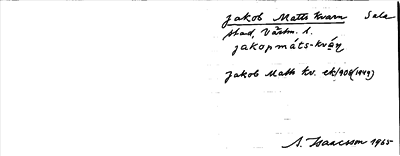 Jakob Matts kvarn Sala
stad, Västm. l.
jakopmáts-kvàṇ
Jakob Matts kv. ek/908 (1949)
S. Isaacsson 1965